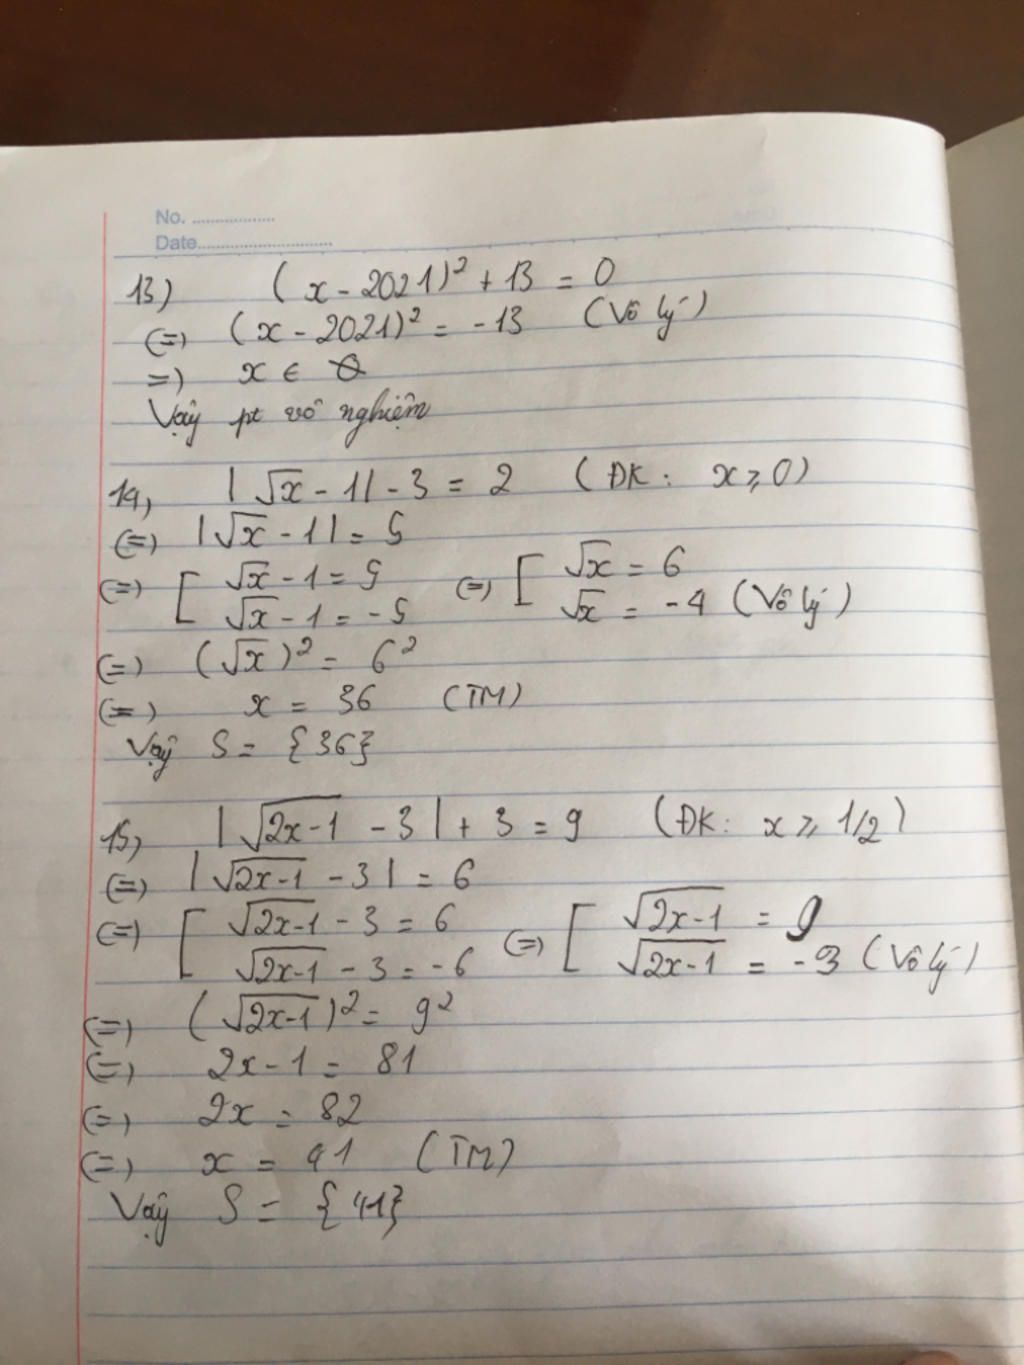 No. ..................
Date..............................
13) (x - 2021)² + 13 = 0
(=) (x - 2021)² = -13 (Vô lý)
=) x ∈ ∅
Vậy pt vô nghiệm
14, |√x - 1| - 3 = 2 (ĐK: x ≥ 0)
(=) |√x - 1| = 5
(=) [ √x - 1 = 5 (=) [ √x = 6
√x - 1 = -5 √x = -4 (Vô lý)
(=) (√x)² = 6²
(=) x = 36 (TM)
Vậy S = {36}
15, |√(2x-1) - 3| + 3 = 9 (ĐK: x ≥ 1/2)
(=) |√(2x-1) - 3| = 6
(=) [ √(2x-1) - 3 = 6 (=) [ √(2x-1) = 9
√(2x-1) - 3 = -6 √(2x-1) = -3 (Vô lý)
(=) (√(2x-1))² = 9²
(=) 2x - 1 = 81
(=) 2x = 82
(=) x = 41 (TM)
Vậy S = {41}